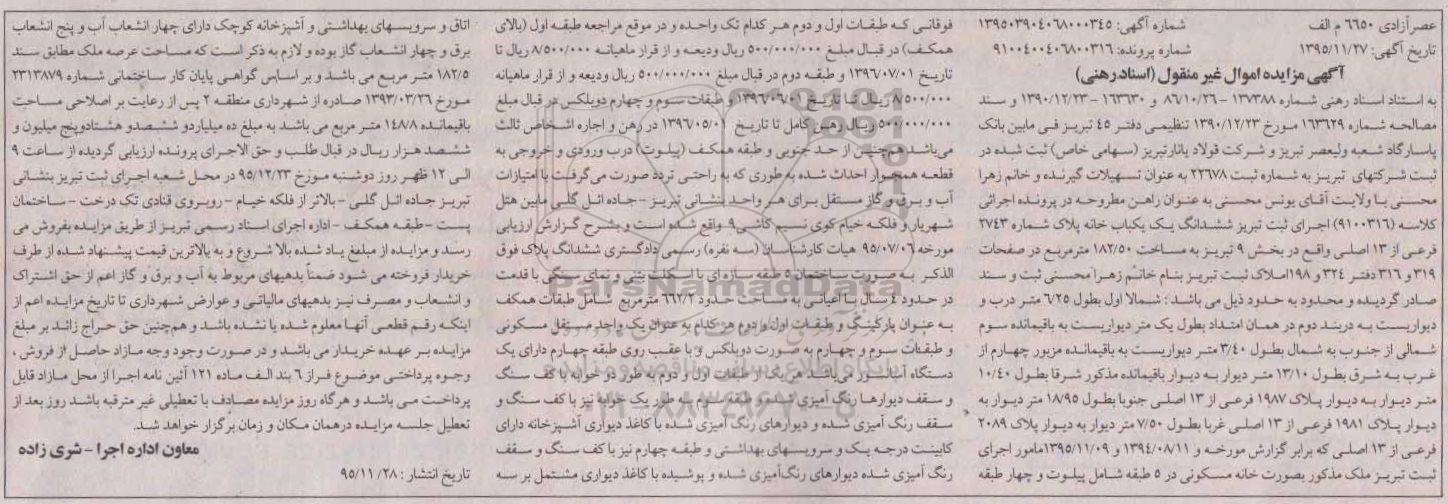 عصرآزادی ۶۶۵۰ م الف
شماره آگهی: ۱۳۹۵۰۳۹۰۴۰۶۸۰۰۰۳۴۵
تاریخ آگهی: ۱۳۹۵/۱۱/۲۷
شماره پرونده: ۹۱۰۰۴۰۰۴۰۶۸۰۰۳۱۶
آگهی مزایده اموال غیر منقول (اسناد رهنی)
به استناد اسناد رهنی شماره ۱۳۷۳۸۸ - ۸۶/۱۰/۲۶ و ۱۶۳۶۳۰ - ۱۳۹۰/۱۲/۲۳ و سند
مصالحه شماره ۱۶۳۶۲۹ مورخ ۱۳۹۰/۱۲/۲۳ تنظیمی دفتر ۴۵ تبریز فی مابین بانک
پاسارگاد شعبه ولیعصر تبریز و شرکت فولاد یانارتبریز (سهامی خاص) ثبت شده در
ثبت شرکتهای تبریز به شماره ثبت ۲۲۶۷۸ به عنوان تسهیلات گیرنده و خانم زهرا
محسنی با ولایت آقای یونس محسنی به عنوان راهن مطروحه در پرونده اجرائی
کلاسه (۹۱۰۰۳۱۶) اجرای ثبت تبریز ششدانگ یک یکباب خانه پلاک شماره ۲۷۴۳
فرعی از ۱۳ اصلی واقع در بخش ۹ تبریز به مساحت ۱۸۲/۵۰ مترمربع در صفحات
۳۱۹ و ۳۱۶ دفتر ۳۲۴ و ۱۹۸ املاک ثبت تبریز بنام خانم زهرا محسنی ثبت و سند
صادر گردیده و محدود به حدود ذیل می باشد: شمالا اول بطول ۶/۲۵ متر درب و
دیواریست به دربند دوم در همان امتداد بطول یک متر دیواریست به باقیمانده سوم
شمالی از جنوب به شمال بطول ۳/۴۰ متر دیواریست به باقیمانده مزبور چهارم از
غرب به شرق بطول ۱۳/۱۰ متر دیوار به دیوار باقیمانده مذکور شرقا بطول ۱۰/۴۰
متر دیوار به دیوار پلاک ۱۹۸۷ فرعی از ۱۳ اصلی جنوبا بطول ۱۸/۹۵ متر دیوار به
دیوار پلاک ۱۹۸۱ فرعی از ۱۳ اصلی غربا بطول ۷/۵۰ متر دیوار به دیوار پلاک ۲۰۸۹
فرعی از ۱۳ اصلی که برابر گزارش مورخه و ۱۳۹۴/۰۸/۱۱ و ۱۳۹۵/۱۱/۰۹ مامور اجرای
ثبت تبریز ملک مذکور بصورت خانه مسکونی در ۵ طبقه شامل پیلوت و چهار طبقه
فوقانی که طبقات اول و دوم هر کدام تک واحده و در موقع مراجعه طبقه اول (بالای
همکف) در قبال مبلغ ۵۰۰/۰۰۰/۰۰۰ ریال ودیعه و از قرار ماهیانه ۸/۵۰۰/۰۰۰ ریال تا
تاریخ ۱۳۹۶/۰۷/۰۱ و طبقه دوم در قبال مبلغ ۵۰۰/۰۰۰/۰۰۰ ریال ودیعه و از قرار ماهیانه
۸/۵۰۰/۰۰۰ ریال تا تاریخ ۱۳۹۶/۰۶/۰۱ و طبقات سوم و چهارم دوبلکس در قبال مبلغ
۵۰۰/۰۰۰/۰۰۰ ریال رهن کامل تا تاریخ ۱۳۹۶/۰۵/۰۱ در رهن و اجاره اشخاص ثالث
می‌باشد همچنین از حد جنوبی و طبقه همکف (پیلوت) درب ورودی و خروجی به
قطعه همجوار احداث شده به طوری که به راحتی تردد صورت می گرفت با امتیازات
آب و برق و گاز مستقل برای هر واحد نشانی تبریز - جاده ائل گلی مابین هتل
شهریار و فلکه خیام کوی نسیم کاشی ۹ واقع شده است و بشرح گزارش ارزیابی
مورخه ۹۵/۰۷/۰۶ هیات کارشناسان (سه نفره) رسمی دادگستری ششدانگ پلاک فوق
الذکر به صورت ساختمان ۵ طبقه سازه ای با اسکلت بتنی و نمای سنگی با قدمت
در حدود ۴ سال با اعیانی به مساحت حدود ۶۶۲/۲ مترمربع شامل طبقات همکف
به عنوان پارکینگ و طبقات اول و دوم هر کدام به عنوان یک واحد مستقل مسکونی
و طبقات سوم و چهارم به صورت دوبلکس و با عقب روی طبقه چهارم دارای یک
دستگاه آسانسور می‌باشد هر یک از طبقات اول و دوم به طور دو خوابه با کف سنگ
و سقف دیوارها رنگ آمیزی شده و طبقه سوم به طور یک خوابه نیز با کف سنگ و
سقف رنگ آمیزی شده و دیوارهای رنگ آمیزی شده با کاغذ دیواری آشپزخانه دارای
کابینت درجه یک و سرویسهای بهداشتی و طبقه چهارم نیز با کف سنگ و سقف
رنگ آمیزی شده دیوارهای رنگ‌آمیزی شده و پوشیده با کاغذ دیواری مشتمل بر سه
اتاق و سرویسهای بهداشتی و آشپزخانه کوچک دارای چهار انشعاب آب و پنج انشعاب
برق و چهار انشعاب گاز بوده و لازم به ذکر است که مساحت عرصه ملک مطابق سند
۱۸۲/۵ متر مربع می باشد و بر اساس گواهی پایان کار ساختمانی شماره ۲۳۱۳۸۷۹
مورخ ۱۳۹۳/۰۳/۲۶ صادره از شهرداری منطقه ۲ پس از رعایت بر اصلاحی مساحت
باقیمانده ۱۴۸/۸ متر مربع می باشد به مبلغ ده میلیاردو ششصدو هشتادوپنج میلیون و
ششصد هزار ریال در قبال طلب و حق الاجرای پرونده ارزیابی گردیده از ساعت ۹
الی ۱۲ ظهر روز دوشنبه مورخ ۹۵/۱۲/۲۳ در محل شعبه اجرای ثبت تبریز بنشانی
تبریز جاده ائل گلی - بالاتر از فلکه خیام - روبروی قنادی تک درخت - ساختمان
پست - طبقه همکف - اداره اجرای اسناد رسمی تبریز از طریق مزایده بفروش می
رسد و مزایده از مبلغ یاد شده بالا شروع و به بالاترین قیمت پیشنهاد شده از طرف
خریدار فروخته می شود ضمناً بدهیهای مربوط به آب و برق و گاز اعم از حق اشتراک
و انشعاب و مصرف نیز بدهیهای مالیاتی و عوارض شهرداری تا تاریخ مزایده اعم از
اینکه رقم قطعی آنها معلوم شده یا نشده باشد و همچنین حق حراج زائد بر مبلغ
مزایده بر عهده خریدار می باشد و در صورت وجود وجه مازاد حاصل از فروش ،
وجوه پرداختی موضوع فراز ۶ بند الف ماده ۱۲۱ آئین نامه اجرا از محل مازاد قابل
پرداخت می باشد و هرگاه روز مزایده مصادف با تعطیلی غیر مترقبه باشد روز بعد از
تعطیل جلسه مزایده درهمان مکان و زمان برگزار خواهد شد.
معاون اداره اجرا - شری زاده
تاریخ انتشار: ۹۵/۱۱/۲۸
ParsNamadData